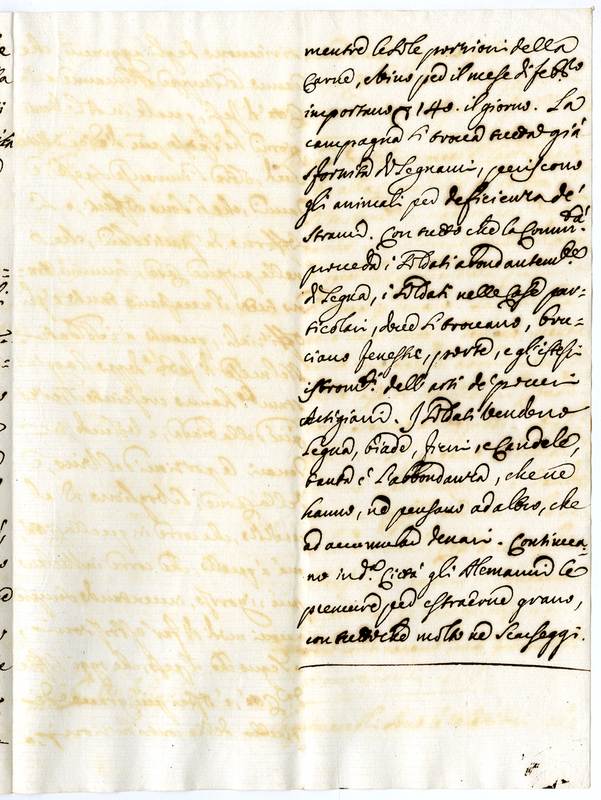 mentre le sole porzioni della
Carne, e vino per il mese di febb.ro
importano 140. il giorno. La
campagna si trova tutta già
sfornita di Legnami, periscono
gli animali per deficienza de'
strami. Con tutto che la Comun.tà
proceda i Soldati abondantem.te
di Legna, i Soldati nelle Case par=
ticolari, dove si trovano, bru=
ciano fenestre, porte, e gl'istessi
istrom.ti dell'arti de' poveri
Artigiani. I Soldati vendono
Legna, biade, fieni, e Candele,
tanta è l'abbondanza, che ne
hanno, ne pensano ad altro, che
ad accumular denari. Continua=
no in d.a Città gli Alemanni le
premure per estraerne grano,
con tutto che molto ne scarseggi.